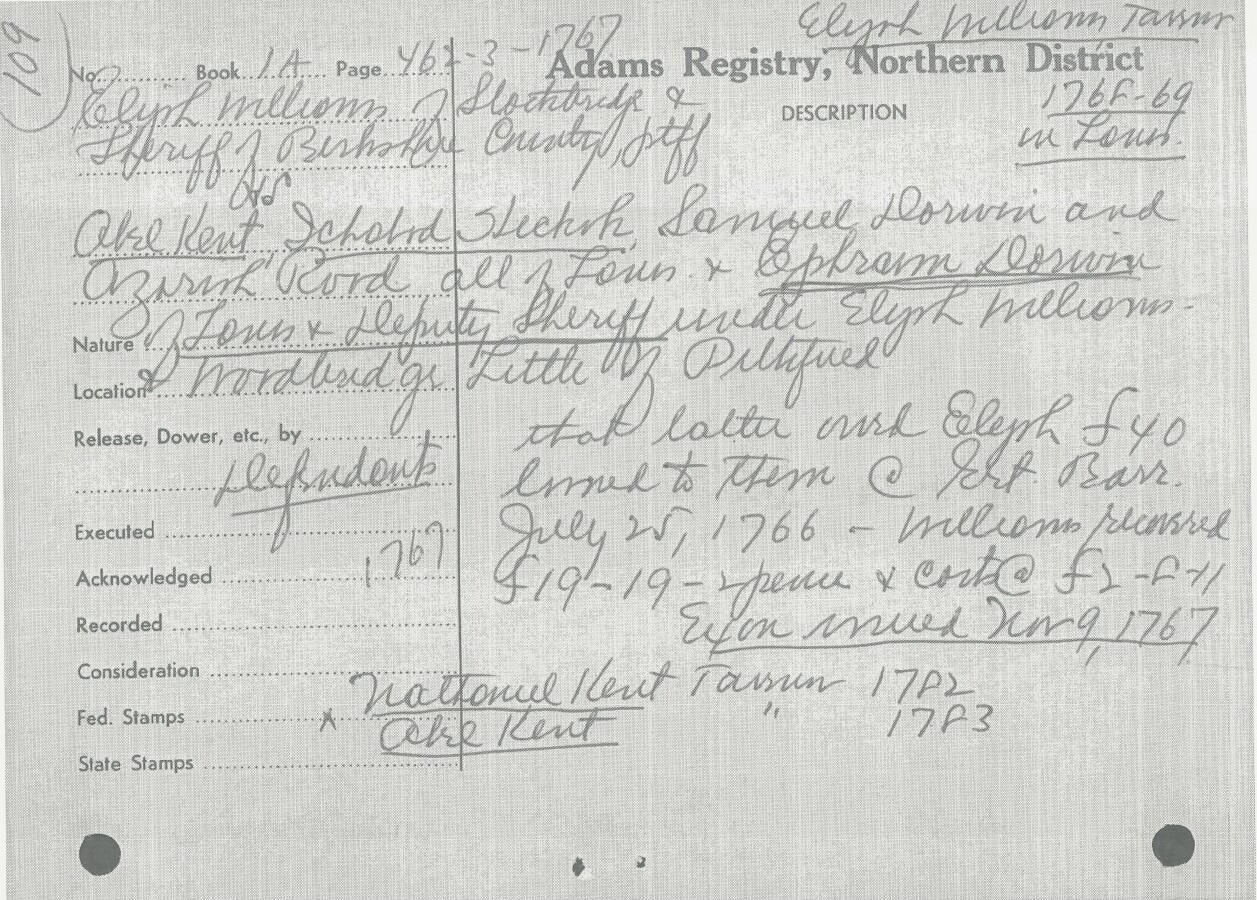 109
Elijah Williams Tavern
No. Book 1A Page 462-3-1767
Adams Registry, Northern District
DESCRIPTION
1768-69
in Lanes.
Elijah Williams of Stockbridge &
Sheriff of Berkshire County, ptff
vs
Abel Kent, Ichabod Samuel Dorwin and
Azariah Rood all of Lanes. & Ephraim Dorwin
Nature of Lanes & Deputy Sheriff under Elijah Williams-
Location & Woodbridge Little of Pittsfield
Release, Dower, etc., by that latter owed Elijah £40
Defendants loaned to them @ Grt. Barr.
Executed July 25, 1766 - Williams recovered
Acknowledged 1767 £19-19-2 pence & costs @ £2-8-11
Recorded Exon issued Nov 9, 1767
Consideration
Nathaniel Kent Tavern 1782
Fed. Stamps x Abel Kent " 1783
State Stamps